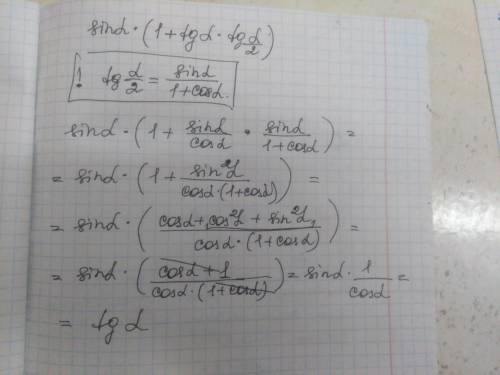 sinα · (1 + tgα · tg α/2)
! tg α/2 = sinα / 1+cosα.
sinα · (1 + sinα/cosα · sinα/1+cosα) =
= sinα · (1 + sin²α / cosα·(1+cosα)) =
= sinα · (cosα + cos²α + sin²α / cosα·(1+cosα)) =
= sinα · (cosα + 1 / cosα·(1+cosα)) = sinα · 1/cosα =
= tg α